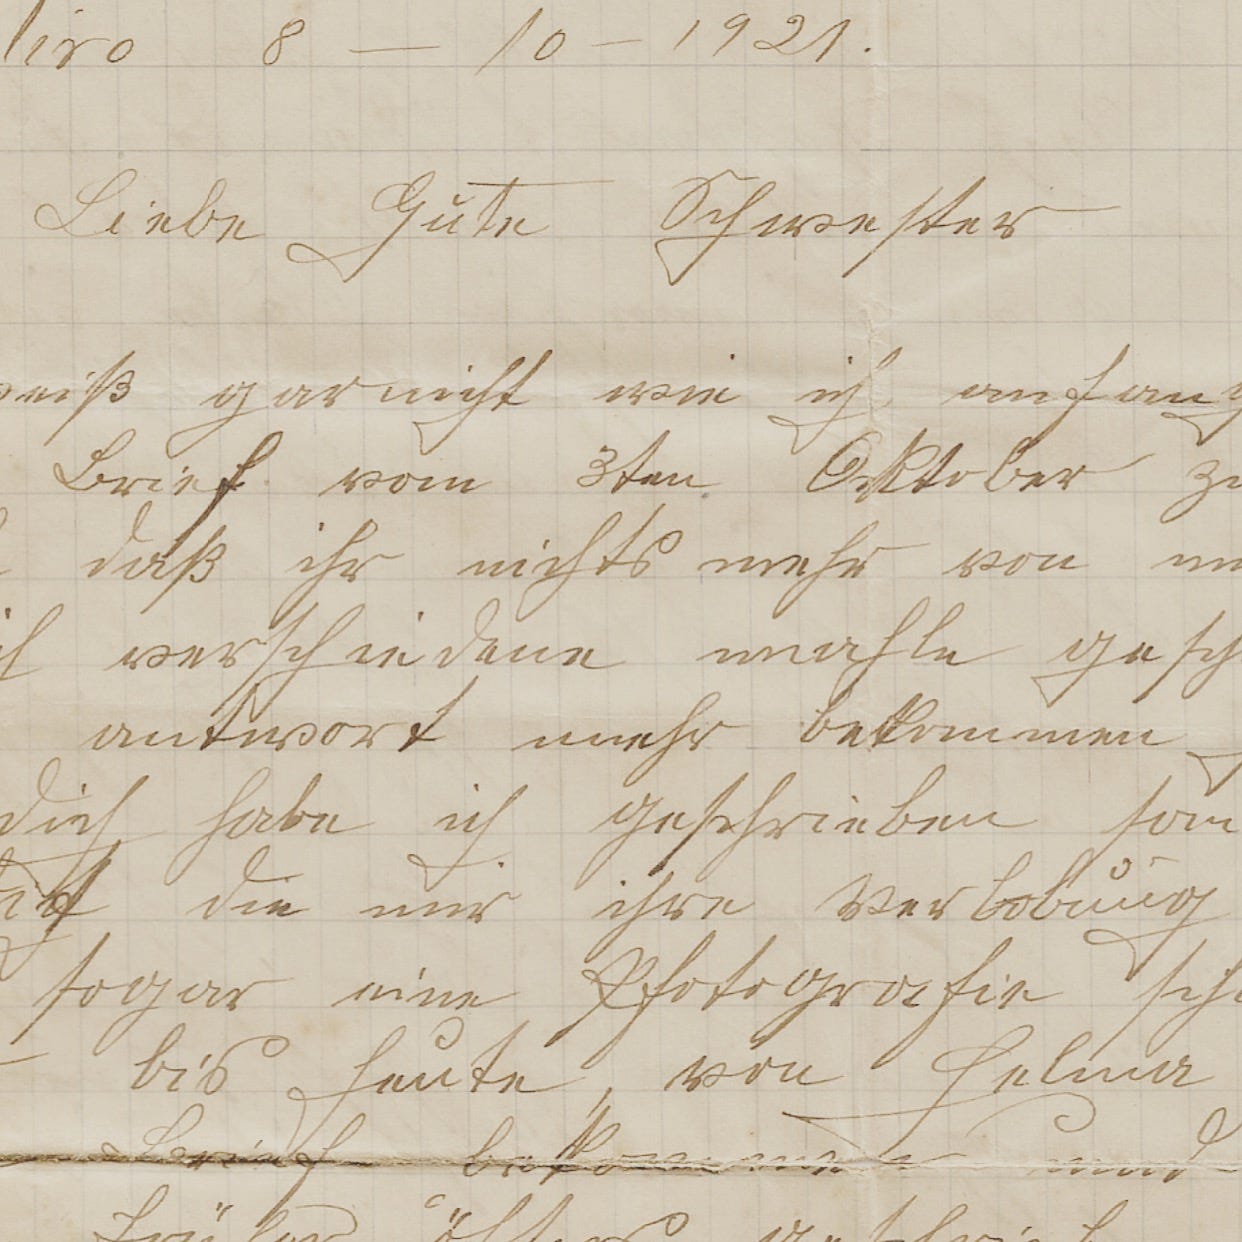 liro 8 — 10 — 1921.
Liebe Gute Schwester
weiß garnicht wie ich anfang
Brief vom 3ten Oktober zu
daß ihr nichts mehr von mi
ich verschiedene mahle gesch
antwort mehr bekommen
dich habe ich geschrieben son
die mir ihre Verlobung
sogar eine Pfotografie sch
bis heute, von Helma
Brief bekommen und
früher öfters geschrieb